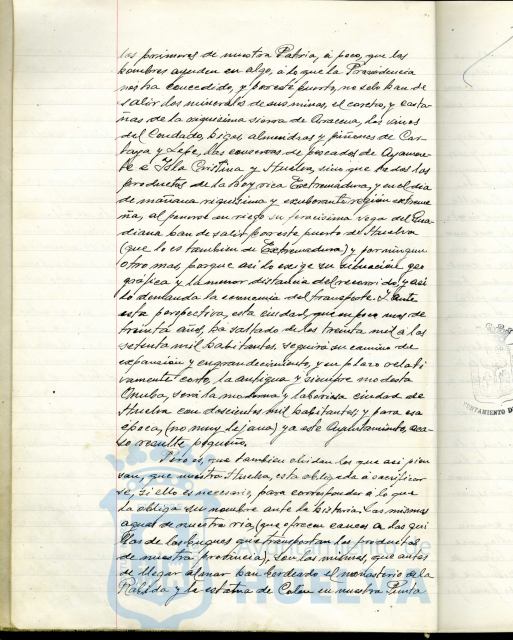 los primores de nuestra Patria, a poco, que los
hombres ayuden en algo, a lo que la Providencia
nos ha concedido, y por este puerto, no solo han de
salir los minerales de sus minas, el corcho, y casta-
ñas de la riquisima sierra de Aracena, los vinos
del Condado, higos, almendras y piñones de Car-
taya y Lepe, las conservas de pescados de Ayamon-
te e Isla Cristina y Huelva, sino que todos los
productos de la hoy rica Extremadura, y en el dia
de mañana riquisima y exuberante región extreme-
ña, al ponerse en riego su feracisima vega del Gua-
diana han de salir por este puerto de Huelva
(que lo es tambien de Extremadura) y por ningun
otro mas, porque asi lo exige su situación geo-
gráfica y la menor distancia del recorrido, y asi
lo demanda la economia del transporte. Y ante
esta perspectiva, esta ciudad, que en poco mas de
treinta años, ha saltado de los treinta mil a los
setenta mil habitantes, seguirá su camino de
expansión y engrandecimiento, y en plazo relati-
vamente corto, la antigua y siempre modesta
Onuba, será la moderna y laboriosa ciudad de
Huelva con doscientos mil habitantes, y para esa
época, (no muy lejana) ya este Ayuntamiento, aca-
so resulte pequeño.
Pero es, que tambien olvidan los que asi pien-
san, que nuestra Huelva, esta obligada a sacrificar-
se, si ello es necesario, para corresponder a lo que
la obliga su nombre ante la historia. Las mismas
aguas de nuestra ria, (que ofrecen cauces a las qui-
llas de los buques que transportan los productos
de nuestra provincia), son las mismas, que antes
de llegar al mar han bordeado el monasterio de la
Rabida y la estatua de Colon en nuestra Punta
HUELVA